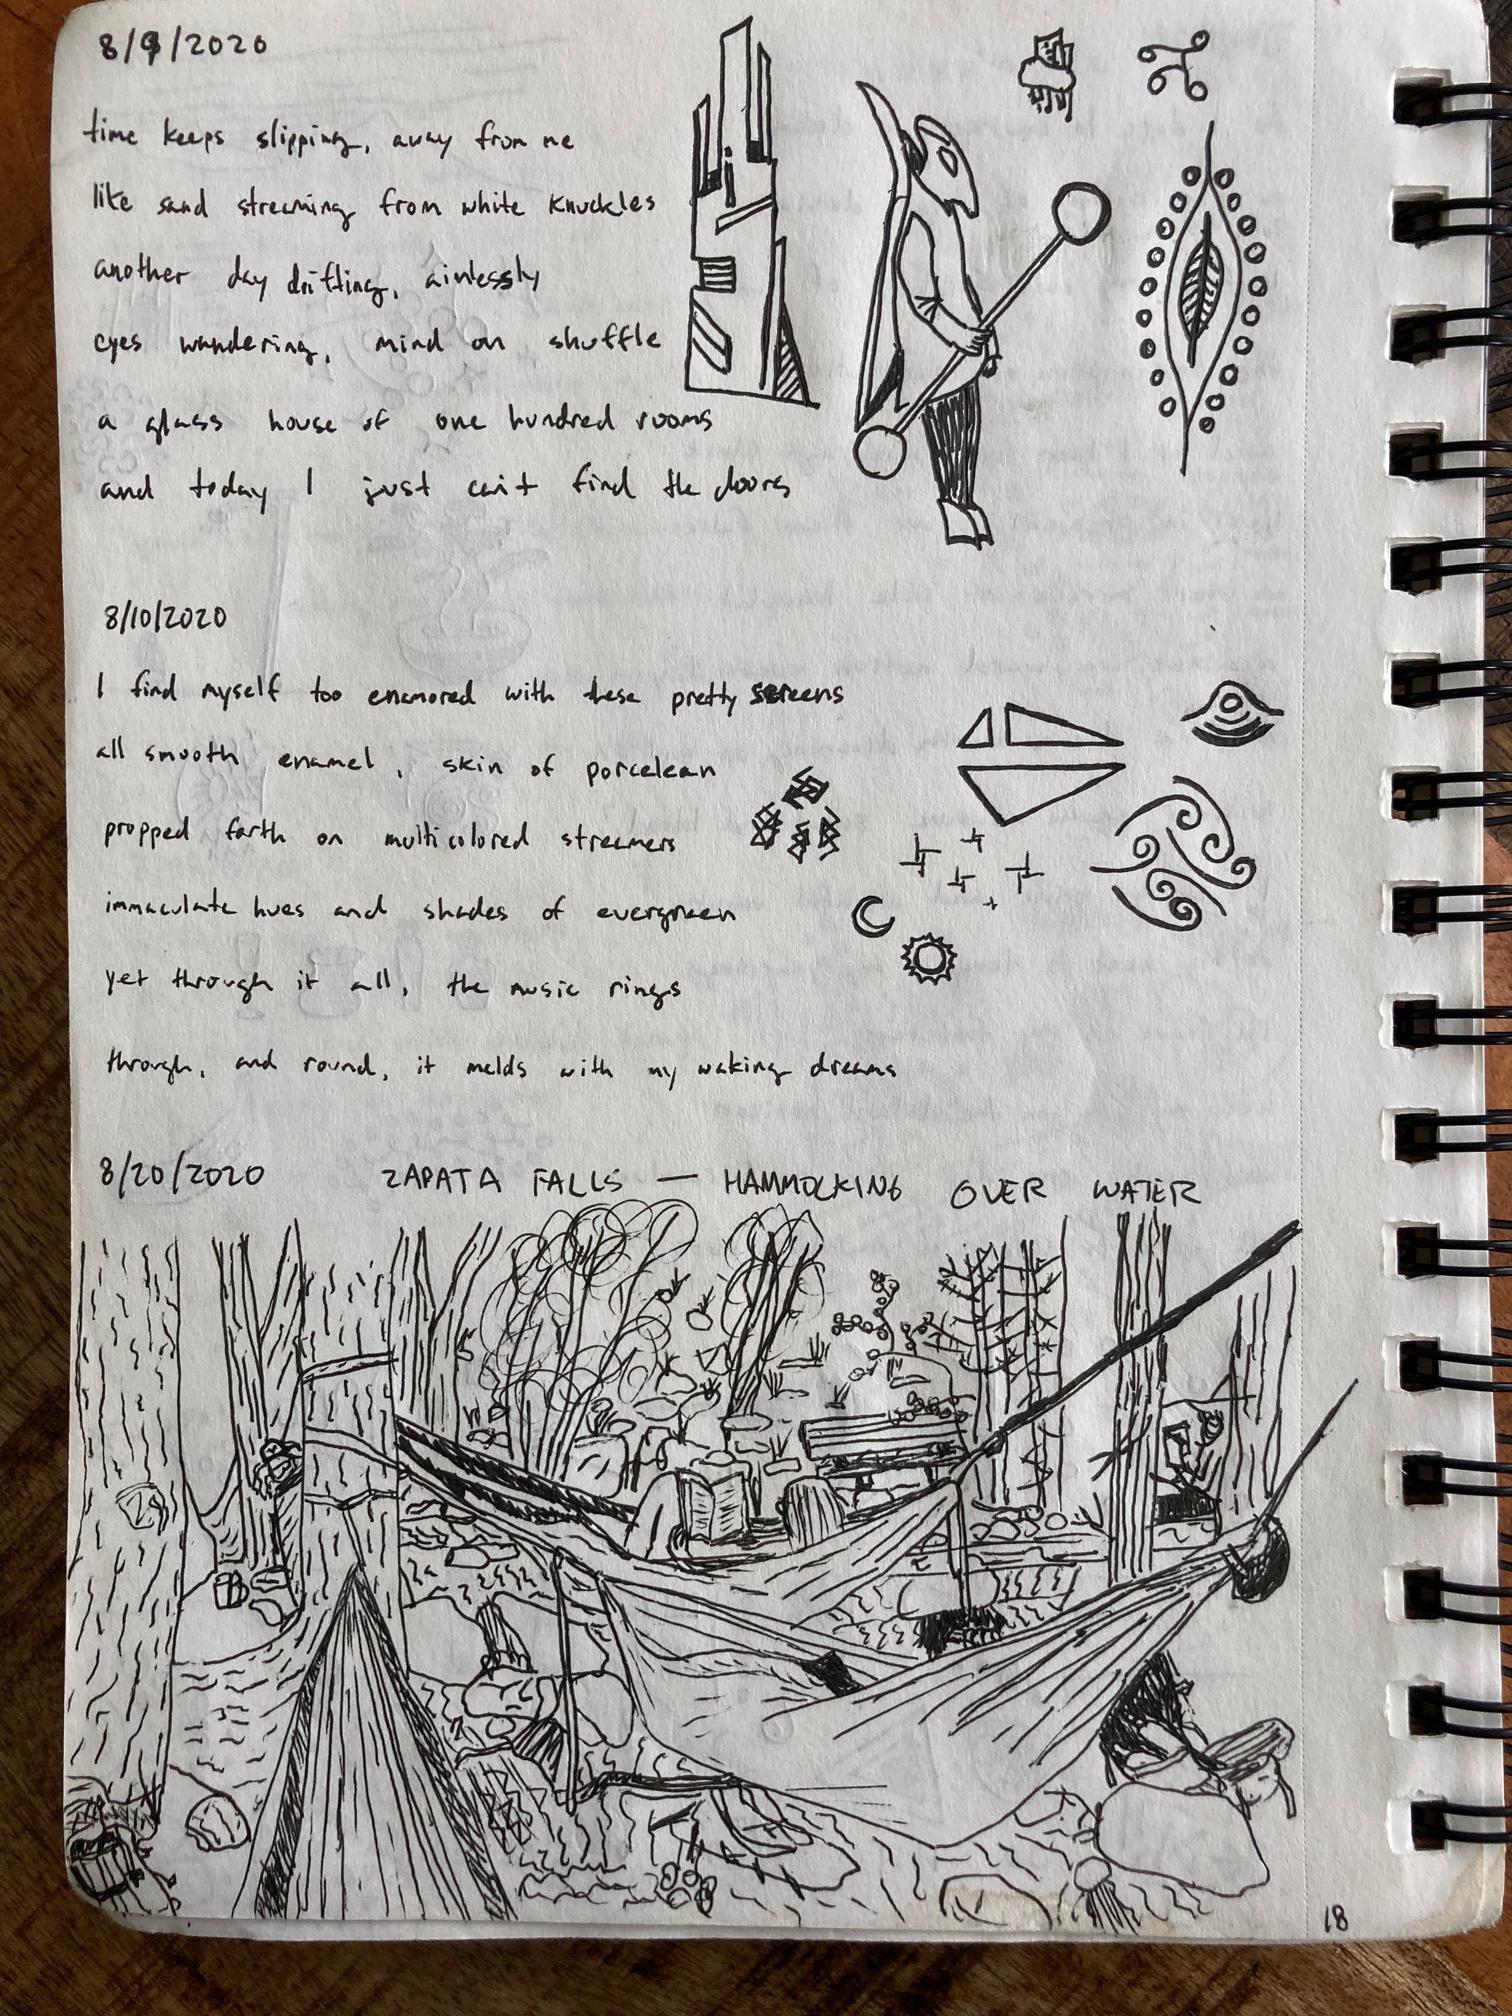 8/9/2020
time keeps slipping, away from me
like sand streaming from white knuckles
another day drifting, aimlessly
eyes wandering, mind on shuffle
a glass house of one hundred rooms
and today I just can't find the doors
8/10/2020
I find myself too enamored with these pretty screens
all smooth enamel, skin of porcelean
propped forth on multicolored streamers
immaculate hues and shades of evergreen
yet through it all, the music rings
through, and round, it melds with my waking dreams
8/20/2020 ZAPATA FALLS — HAMMOCKING OVER WATER
18